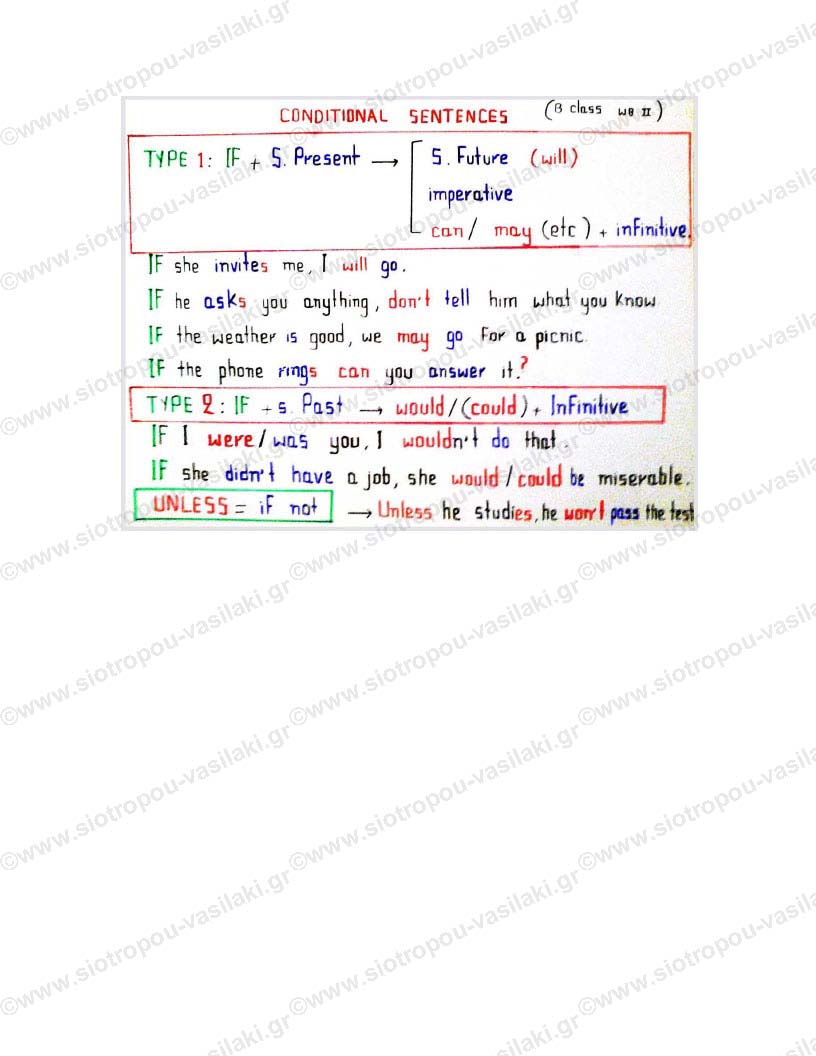 CONDITIONAL SENTENCES (B class WB II)
TYPE 1: IF + S. Present → S. Future (will)
imperative
can / may (etc) + infinitive.
IF she invites me, I will go.
IF he asks you anything, don't tell him what you know.
IF the weather is good, we may go for a picnic.
IF the phone rings can you answer it?
TYPE 2: IF + S. Past → would / (could) + Infinitive
IF I were / was you, I wouldn't do that.
IF she didn't have a job, she would / could be miserable.
UNLESS = if not → Unless he studies, he won't pass the test
©www.siotropou-vasilaki.gr